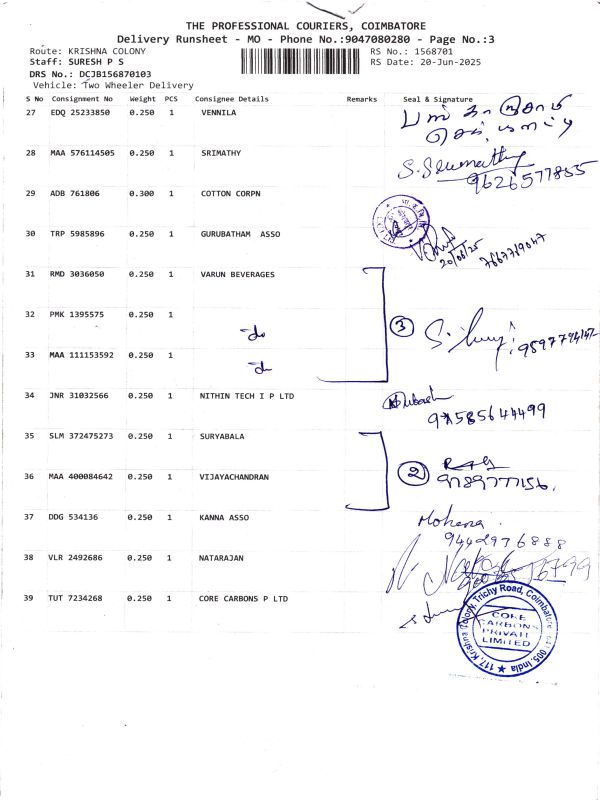 THE PROFESSIONAL COURIERS, COIMBATORE
Delivery Runsheet - MO - Phone No.:9047080280 - Page No.:3
Route: KRISHNA COLONY RS No.: 1568701
Staff: SURESH P S RS Date: 20-Jun-2025
DRS No.: DCJB156870103
Vehicle: Two Wheeler Delivery
S No Consignment No Weight PCS Consignee Details Remarks Seal & Signature
27 EDQ 25233850 0.250 1 VENNILA
28 MAA 576114505 0.250 1 SRIMATHY
9626577855
29 ADB 761806 0.300 1 COTTON CORPN
30 TRP 5985896 0.250 1 GURUBATHAM ASSO
20/06/25 7667769047
31 RMD 3036050 0.250 1 VARUN BEVERAGES
32 PMK 1395575 0.250 1
do 3
33 MAA 111153592 0.250 1
do
34 JNR 31032566 0.250 1 NITHIN TECH I P LTD
35 SLM 372475273 0.250 1 SURYABALA
36 MAA 400084642 0.250 1 VIJAYACHANDRAN 2
9789777156.
37 DDG 534136 0.250 1 KANNA ASSO Mohana
9442976888
38 VLR 2492686 0.250 1 NATARAJAN
39 TUT 7234268 0.250 1 CORE CARBONS P LTD
CORE
CARBONS
PRIVATE
LIMITED
117, Krishna Colony, Trichy Road, Coimbatore 641 005. India